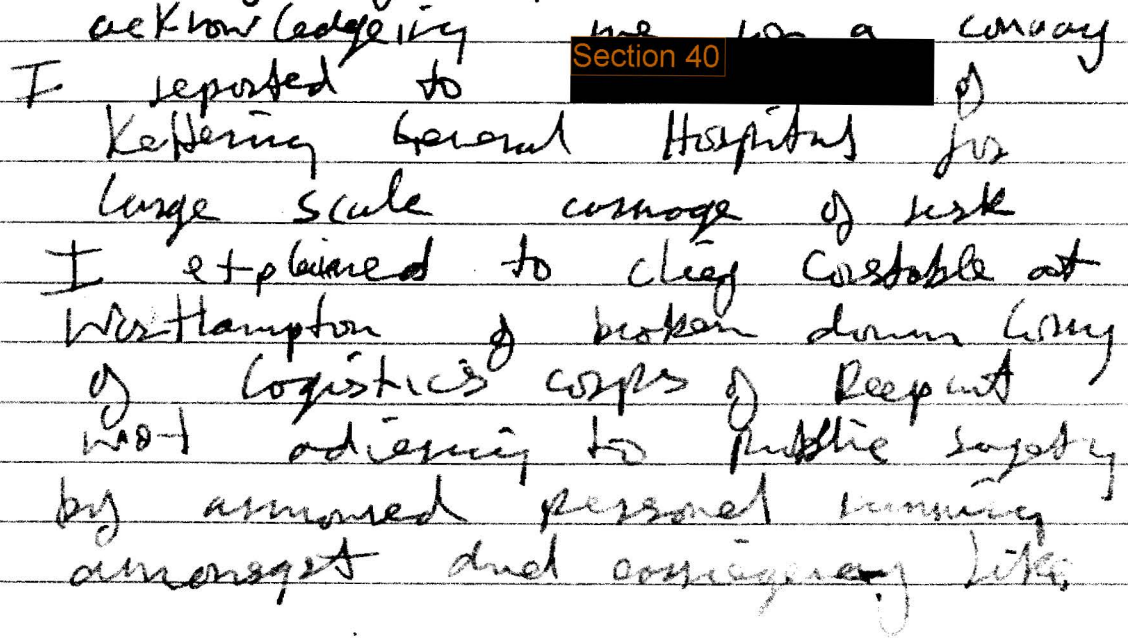 acknowledgeing me for a convoy
I reported to Section 40 of
Kettering General Hospital for
large scale carnage of risk
I explained to chief constable at
Northampton of broken down lorry
of logistics corps of Deepcut
not adiering to public safety
by armoured personel running
amongst dual carriageway like